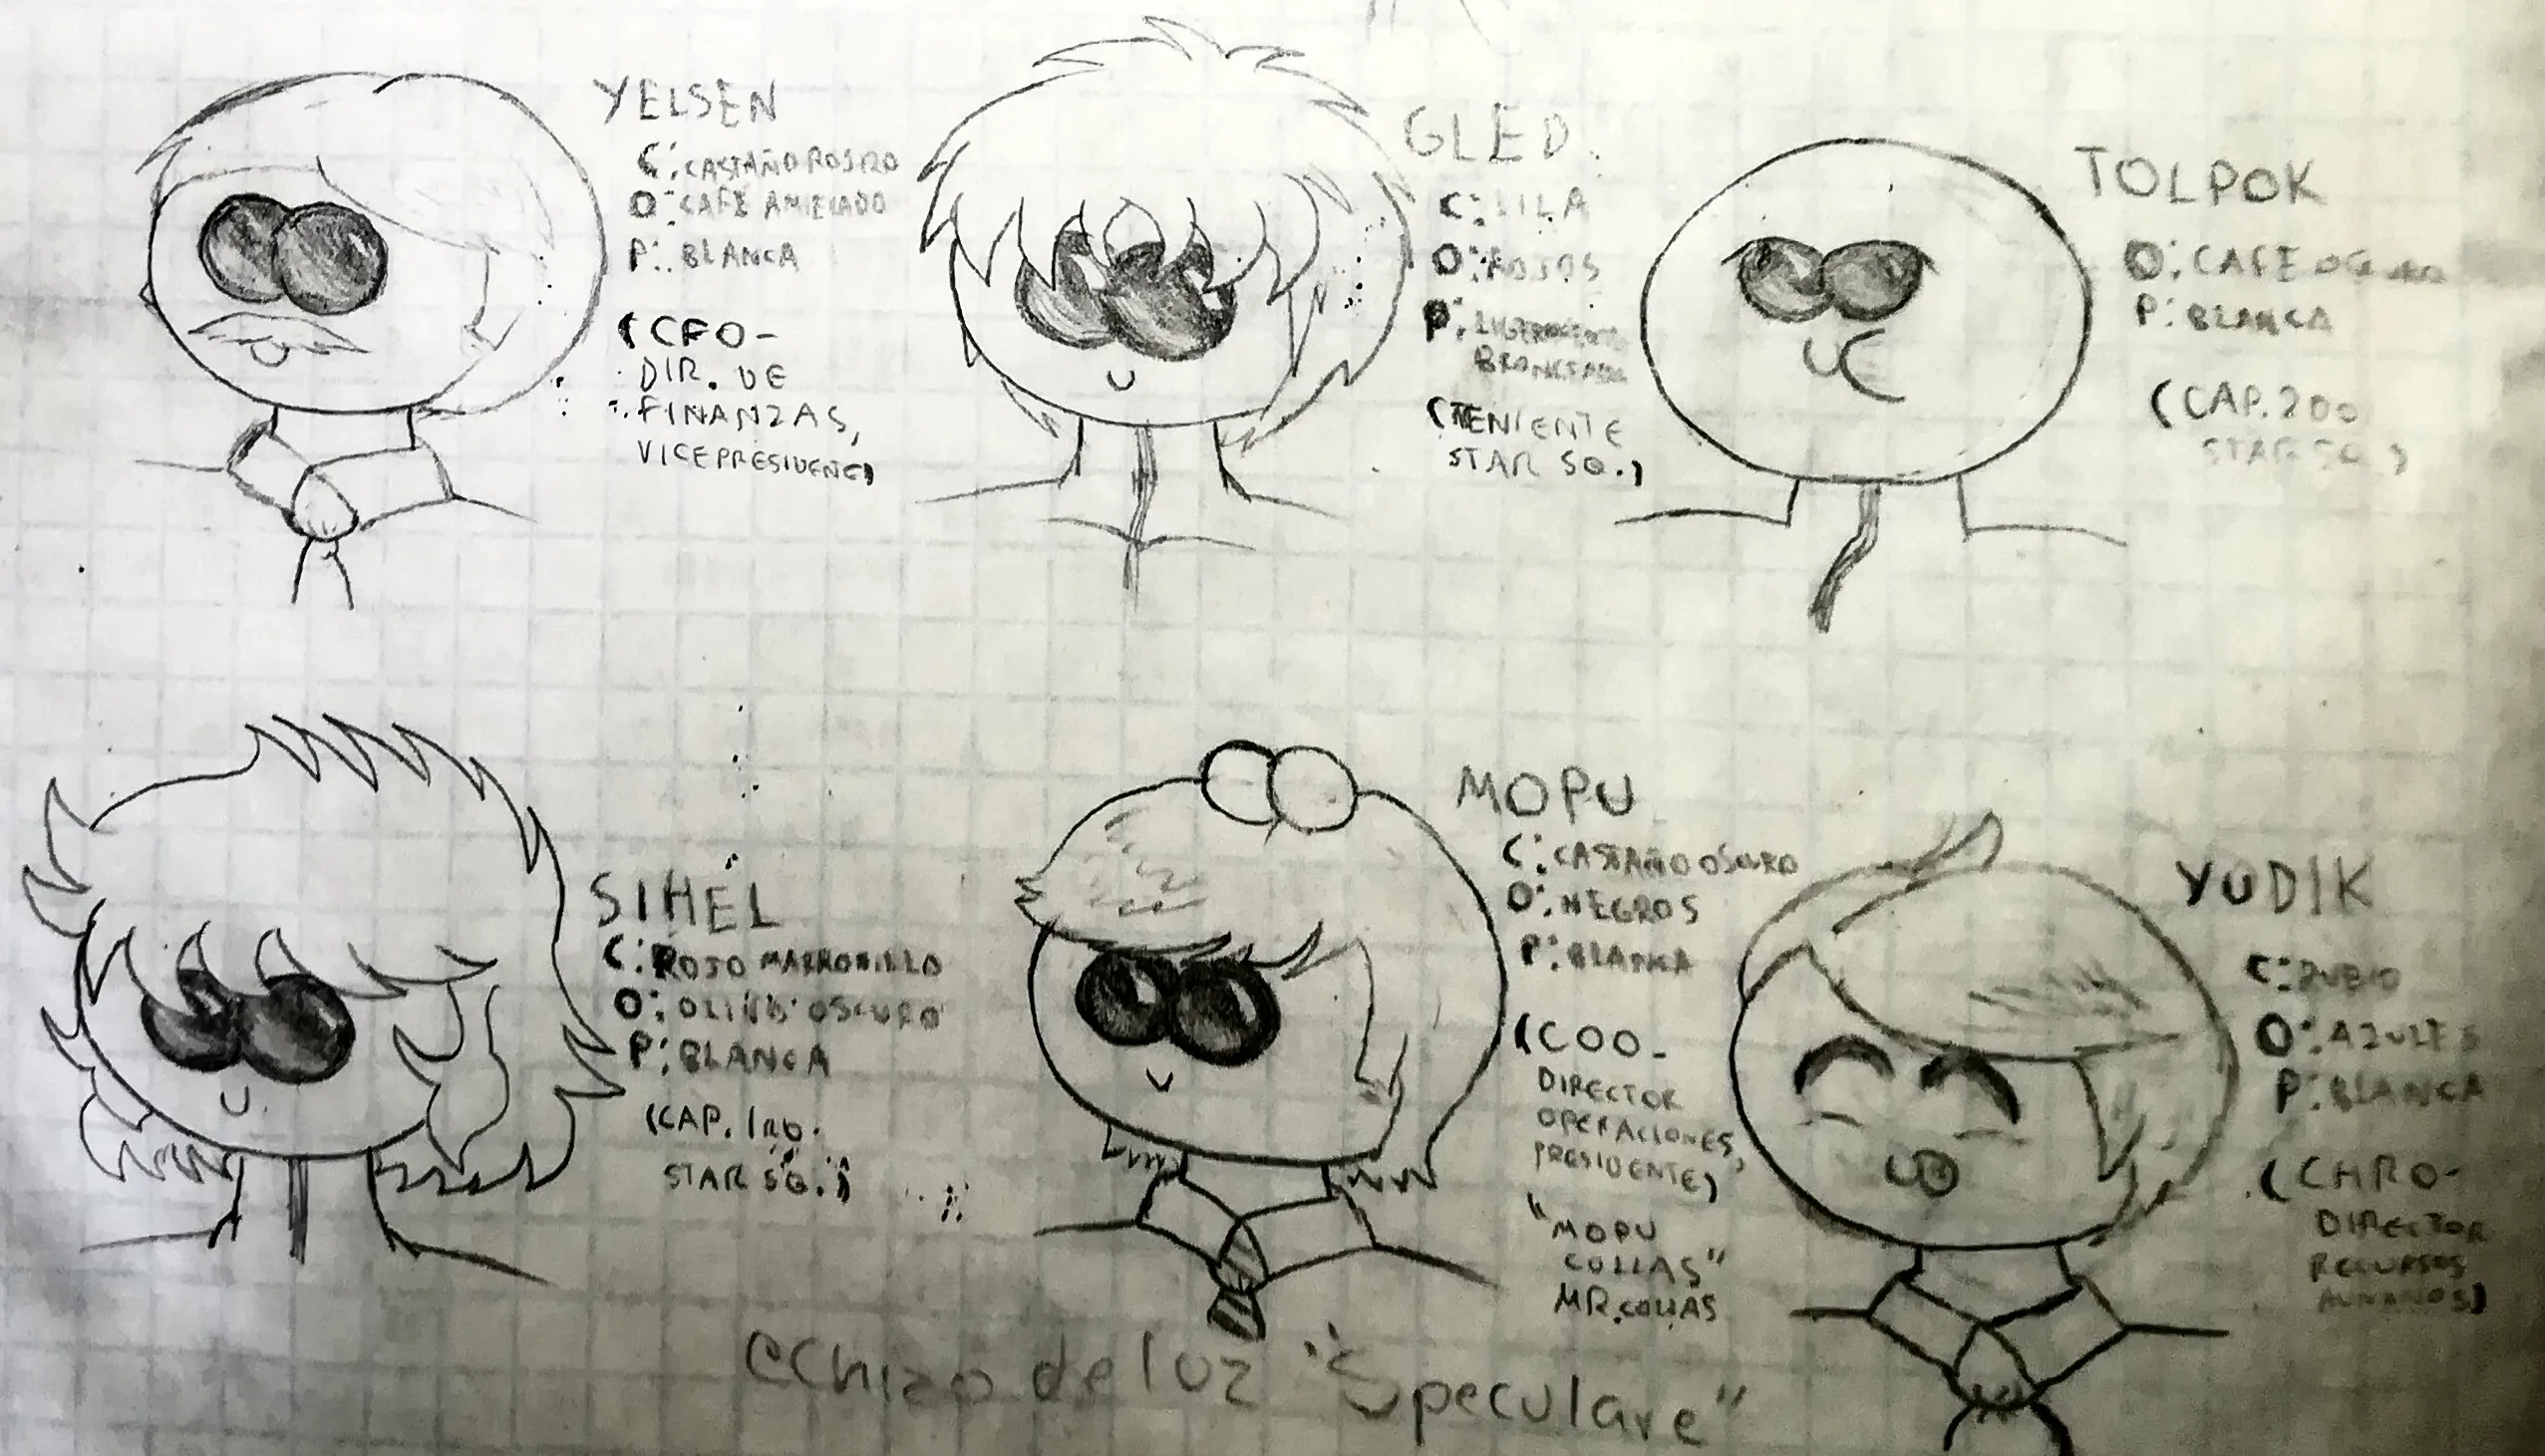 YELSEN
C: CASTAÑO ROJIZO
O: CAFE AMIELADO
P: BLANCA
(CFO-
DIR. DE
FINANZAS,
VICEPRESIDENC)
GLED
C: LILA
O: ROJOS
P: LIGERAMENTE
BRONCEADA
(TENIENTE
STAR SQ.)
TOLPOK
O: CAFE OSCURO
P: BLANCA
(CAP. 200
STAR SQ.)
SIHEL
C: ROJO MARRONILLO
O: OLIVO OSCURO
P: BLANCA
(CAP. 1RO.
STAR SG.)
MOPU
C: CASTAÑO OSCURO
O: NEGROS
P: BLANCA
(COO-
DIRECTOR
OPERACIONES,
PRESIDENTE)
"MOPU
COLLAS"
MR. COLLAS
YUDIK
C: RUBIO
O: AZULES
P: BLANCA
(CHRO-
DIRECTOR
RECURSOS
HUMANOS)
echizo de luz "Speculare"